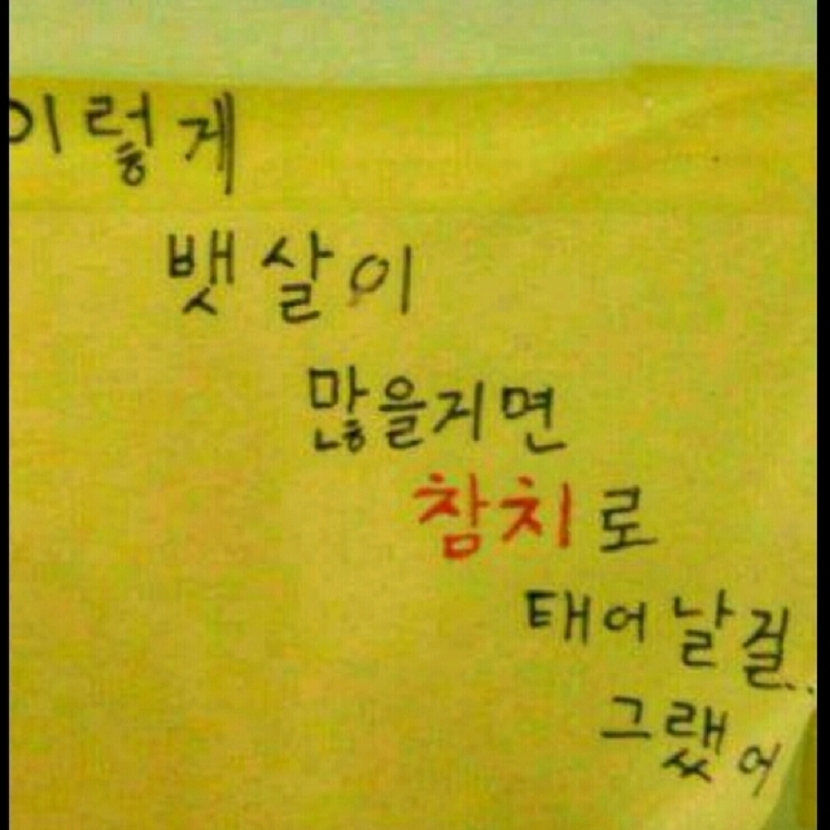 이렇게
뱃살이
많을거면
참치로
태어날걸..
그랬어